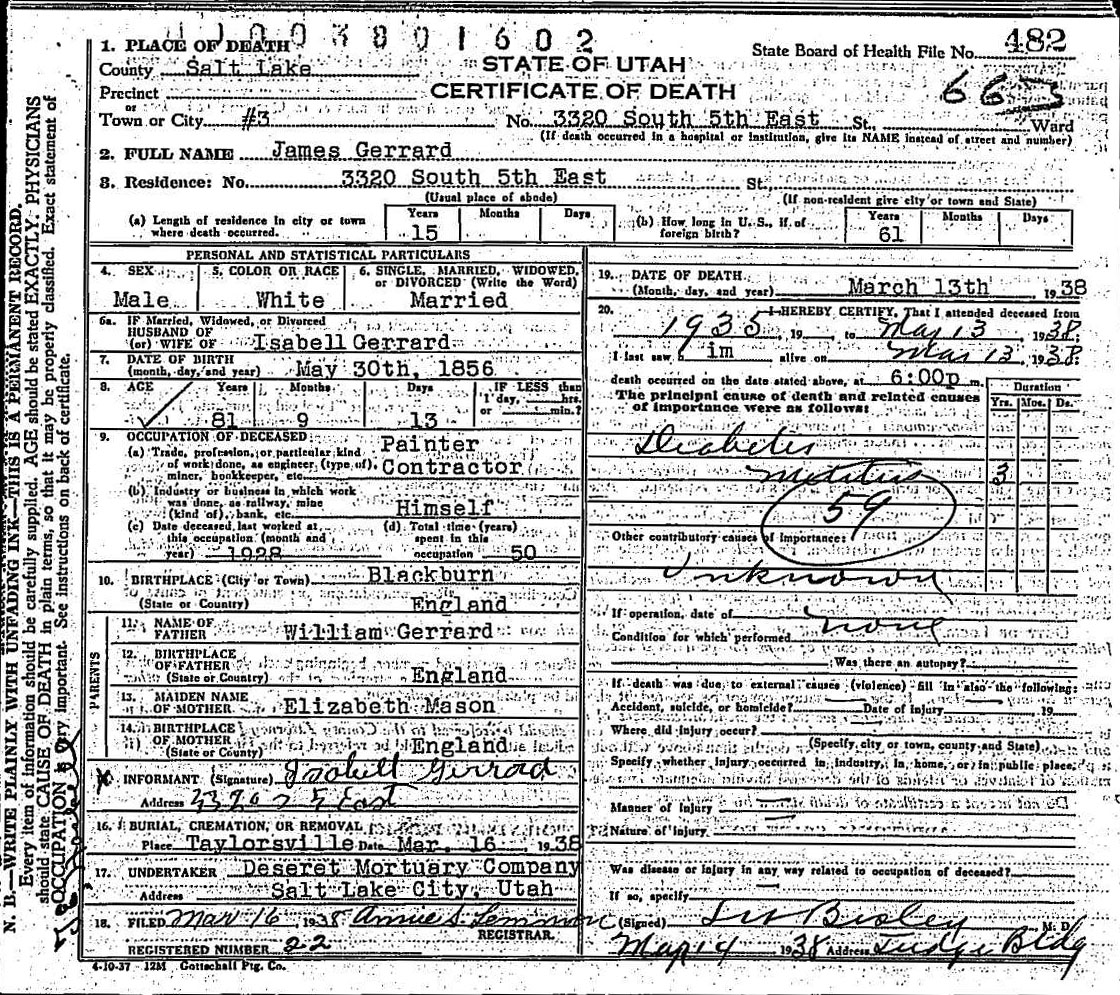 1003801602
1. PLACE OF DEATH
State Board of Health File No. 482
County Salt Lake
STATE OF UTAH
663
Precinct
CERTIFICATE OF DEATH
or
Town or City #3 No. 3320 South 5th East St., Ward
(If death occurred in a hospital or institution, give its NAME instead of street and number)
2. FULL NAME James Gerrard
3. Residence: No. 3320 South 5th East St.
(Usual place of abode) (If non-resident give city or town and State)
(a) Length of residence in city or town where death occurred. Years 15 Months Days
(b) How long in U. S., if of foreign birth? Years 61 Months Days
PERSONAL AND STATISTICAL PARTICULARS
4. SEX Male
5. COLOR OR RACE White
6. SINGLE, MARRIED, WIDOWED, or DIVORCED (Write the Word) Married
6a. IF Married, Widowed, or Divorced
HUSBAND OF
(or) WIFE OF Isabell Gerrard
7. DATE OF BIRTH
(month, day, and year) May 30th, 1856
8. AGE Years 81 Months 9 Days 13 IF LESS than 1 day, hrs. or min.?
9. OCCUPATION OF DECEASED
(a) Trade, profession, or particular kind of work done, as engineer, (type of), miner, bookkeeper, etc. Painter Contractor
(b) Industry or business in which work was done, as railway, mine (kind of), bank, etc. Himself
(c) Date deceased last worked at this occupation (month and year) 1928
(d) Total time (years) spent in this occupation 50
10. BIRTHPLACE (City or Town) Blackburn
(State or Country) England
PARENTS
11. NAME OF FATHER William Gerrard
12. BIRTHPLACE OF FATHER
(State or Country) England
13. MAIDEN NAME OF MOTHER Elizabeth Mason
14. BIRTHPLACE OF MOTHER
(State or County) England
X INFORMANT (Signature) Isabell Gerrard
Address 3320 S 5 East
16. BURIAL, CREMATION, OR REMOVAL
Place Taylorsville Date Mar. 16 1938
17. UNDERTAKER Deseret Mortuary Company
Address Salt Lake City, Utah
18. FILED Mar 16, 1938 Annie S. Lemmon
REGISTRAR.
REGISTERED NUMBER 22
4-10-37 12M Gottschall Ptg. Co.
19. DATE OF DEATH
(Month, day, and year) March 13th 1938
20. I HEREBY CERTIFY, That I attended deceased from
1935, 19 to Mar 13 1938.
I last saw him alive on Mar 13, 1938.
death occurred on the date stated above, at 6:00p m.
The principal cause of death and related causes of importance were as follows:
Duration
Yrs. Mos. Ds.
Diabetis
Mellitus 3
59
Other contributory causes of importance:
Unknown
If operation, date of none
Condition for which performed
Was there an autopsy?
If death was due to external causes (violence) fill in also the following:
Accident, suicide, or homicide? Date of injury 19
Where did injury occur?
(Specify city or town, county and State)
Specify whether injury occurred in industry, in home, or in public place.
Manner of injury
Nature of injury
Was disease or injury in any way related to occupation of deceased?
If so, specify
(Signed) Bisley M. D.
Mar 14 1938 Address Judge Bldg
N. B.—WRITE PLAINLY WITH UNFADING INK—THIS IS A PERMANENT RECORD.
Every item of information should be carefully supplied. AGE should be stated EXACTLY. PHYSICIANS
should state CAUSE OF DEATH in plain terms, so that it may be properly classified. Exact statement of
OCCUPATION is very important. See instructions on back of certificate.